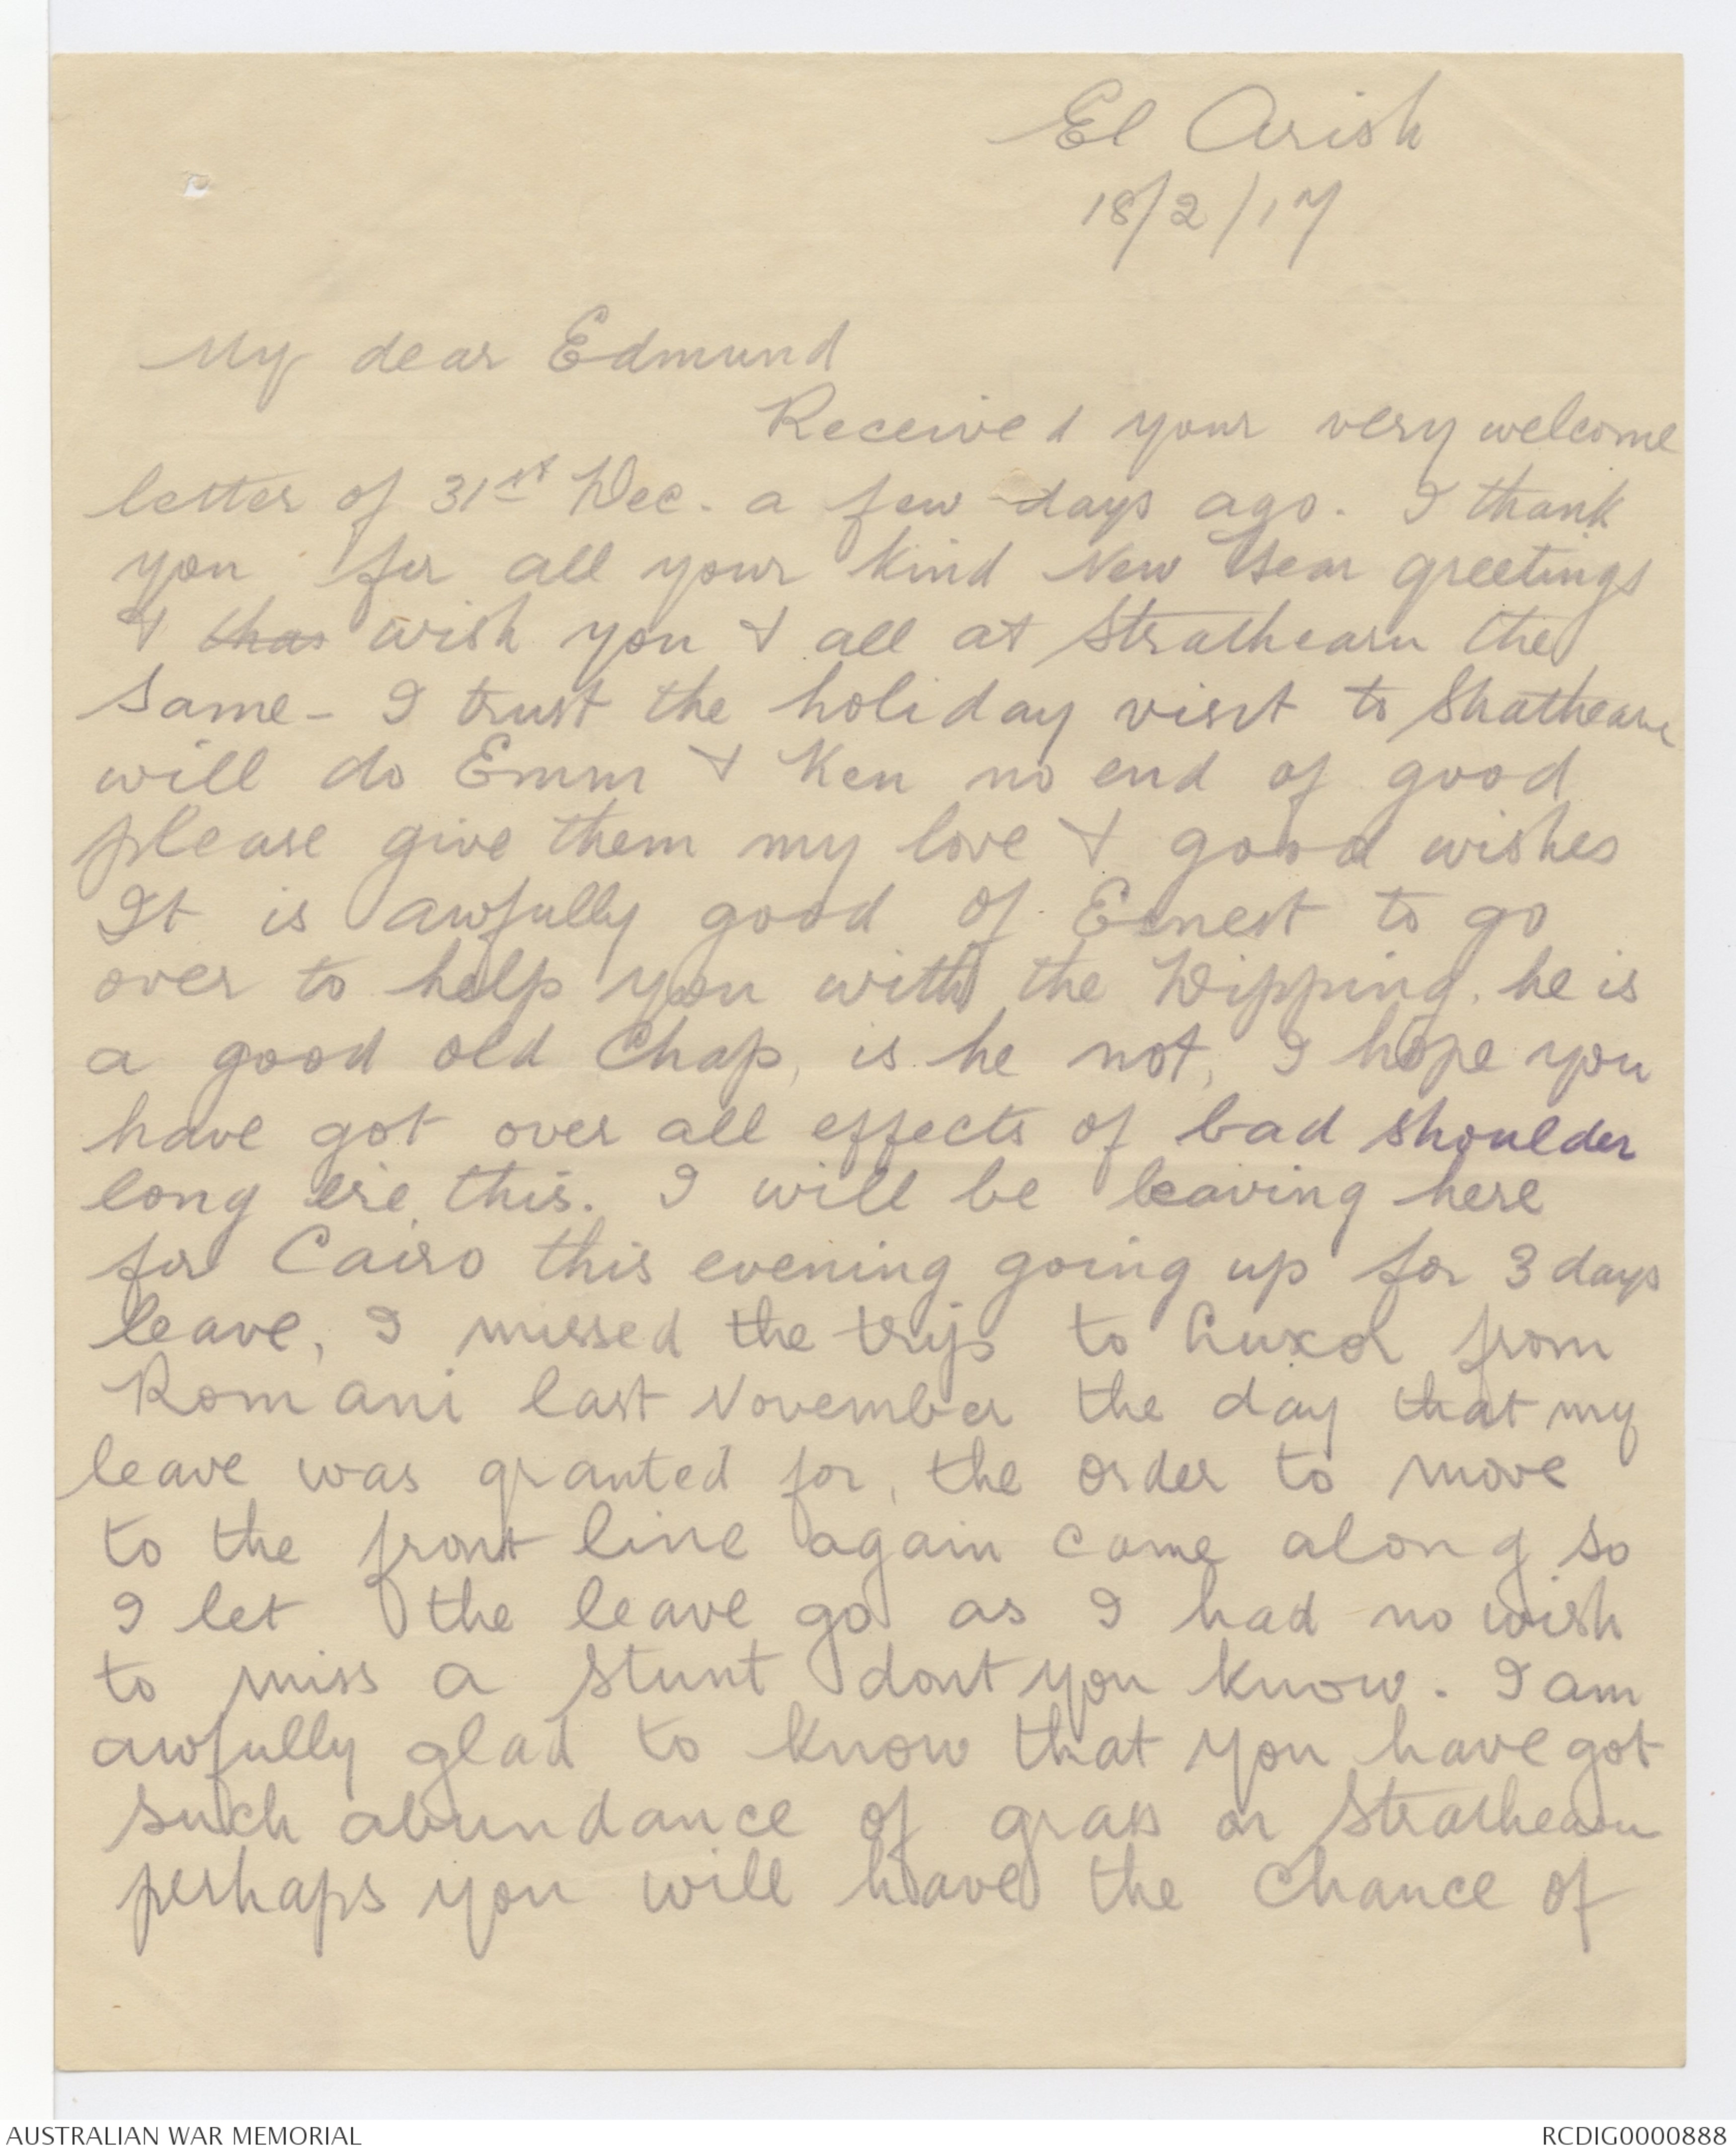 El Arish
18/2/17
My dear Edmund
Received your very welcome
letter of 31st Dec. a few days ago. I thank
you for all your kind New Year greetings
& thas wish you & all at Strathearn the
same - I trust the holiday visit to Strathearn
will do Emm & Ken no end of good
please give them my love & good wishes
It is awfully good of Ernest to go
over to help you with the Dipping, he is
a good old Chap, is he not, I hope you
have got over all effects of bad shoulder
long ere this. I will be leaving here
for Cairo this evening going up for 3 days
leave, I missed the trip to Luxor from
Romani last November the day that my
leave was granted for, the order to move
to the front line again came along so
I let the leave go as I had no wish
to miss a stunt dont you know. I am
awfully glad to know that you have got
such abundance of grass on Strathearn
perhaps you will have the chance of
AUSTRALIAN WAR MEMORIAL
RCDIG0000888